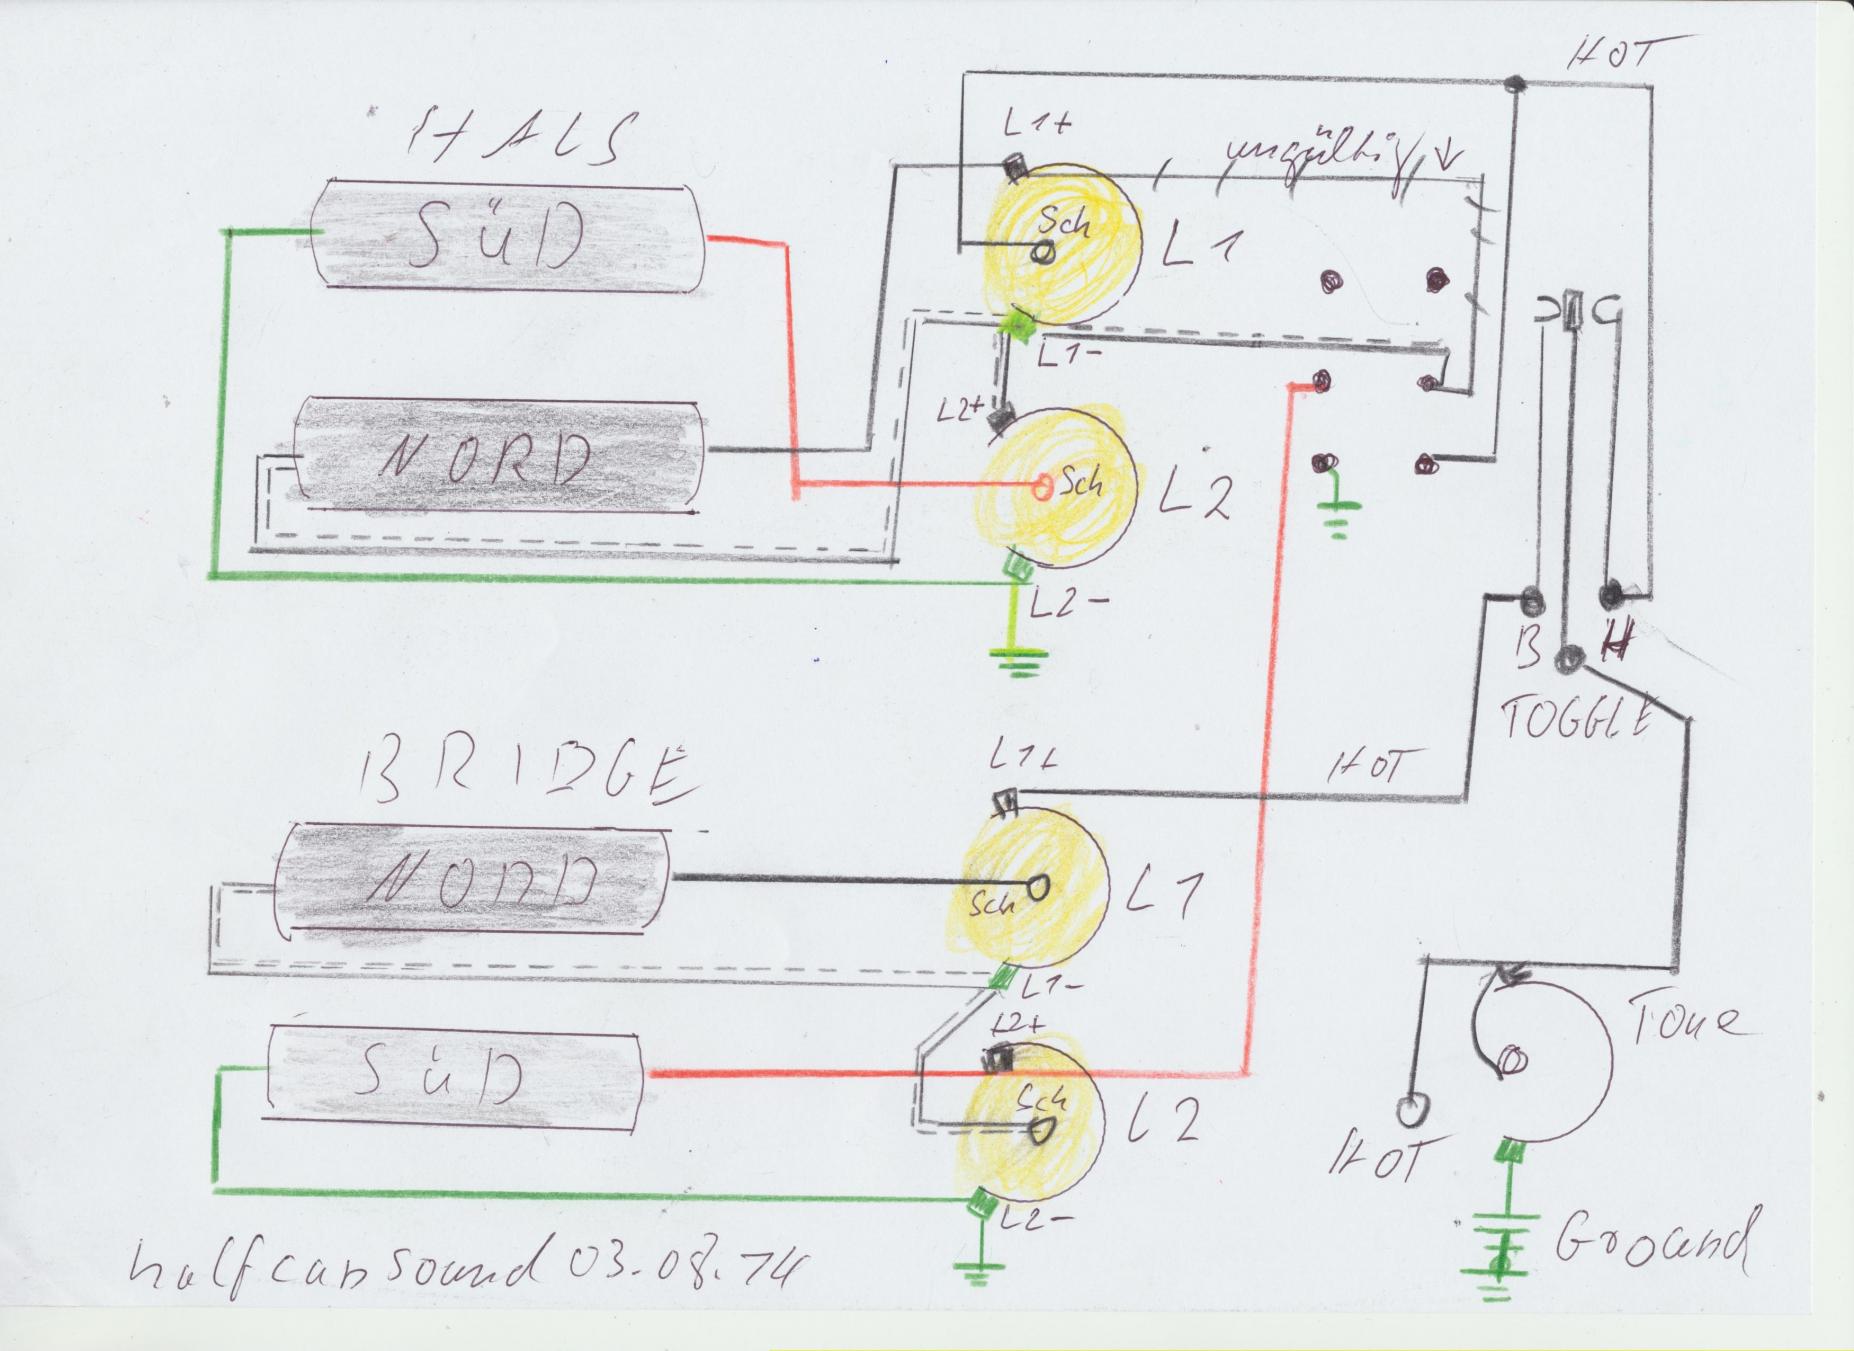 HOT
HALS
L1+
ungültig
SÜD
Sch
L1
L1-
L2+
NORD
Sch
L2
L2-
B
H
TOGGLE
BRIDGE
L1+
HOT
NORD
Sch
L1
L1-
L2+
Tone
SÜD
Sch
L2
HOT
L2-
Ground
halfcansound 03.08.14